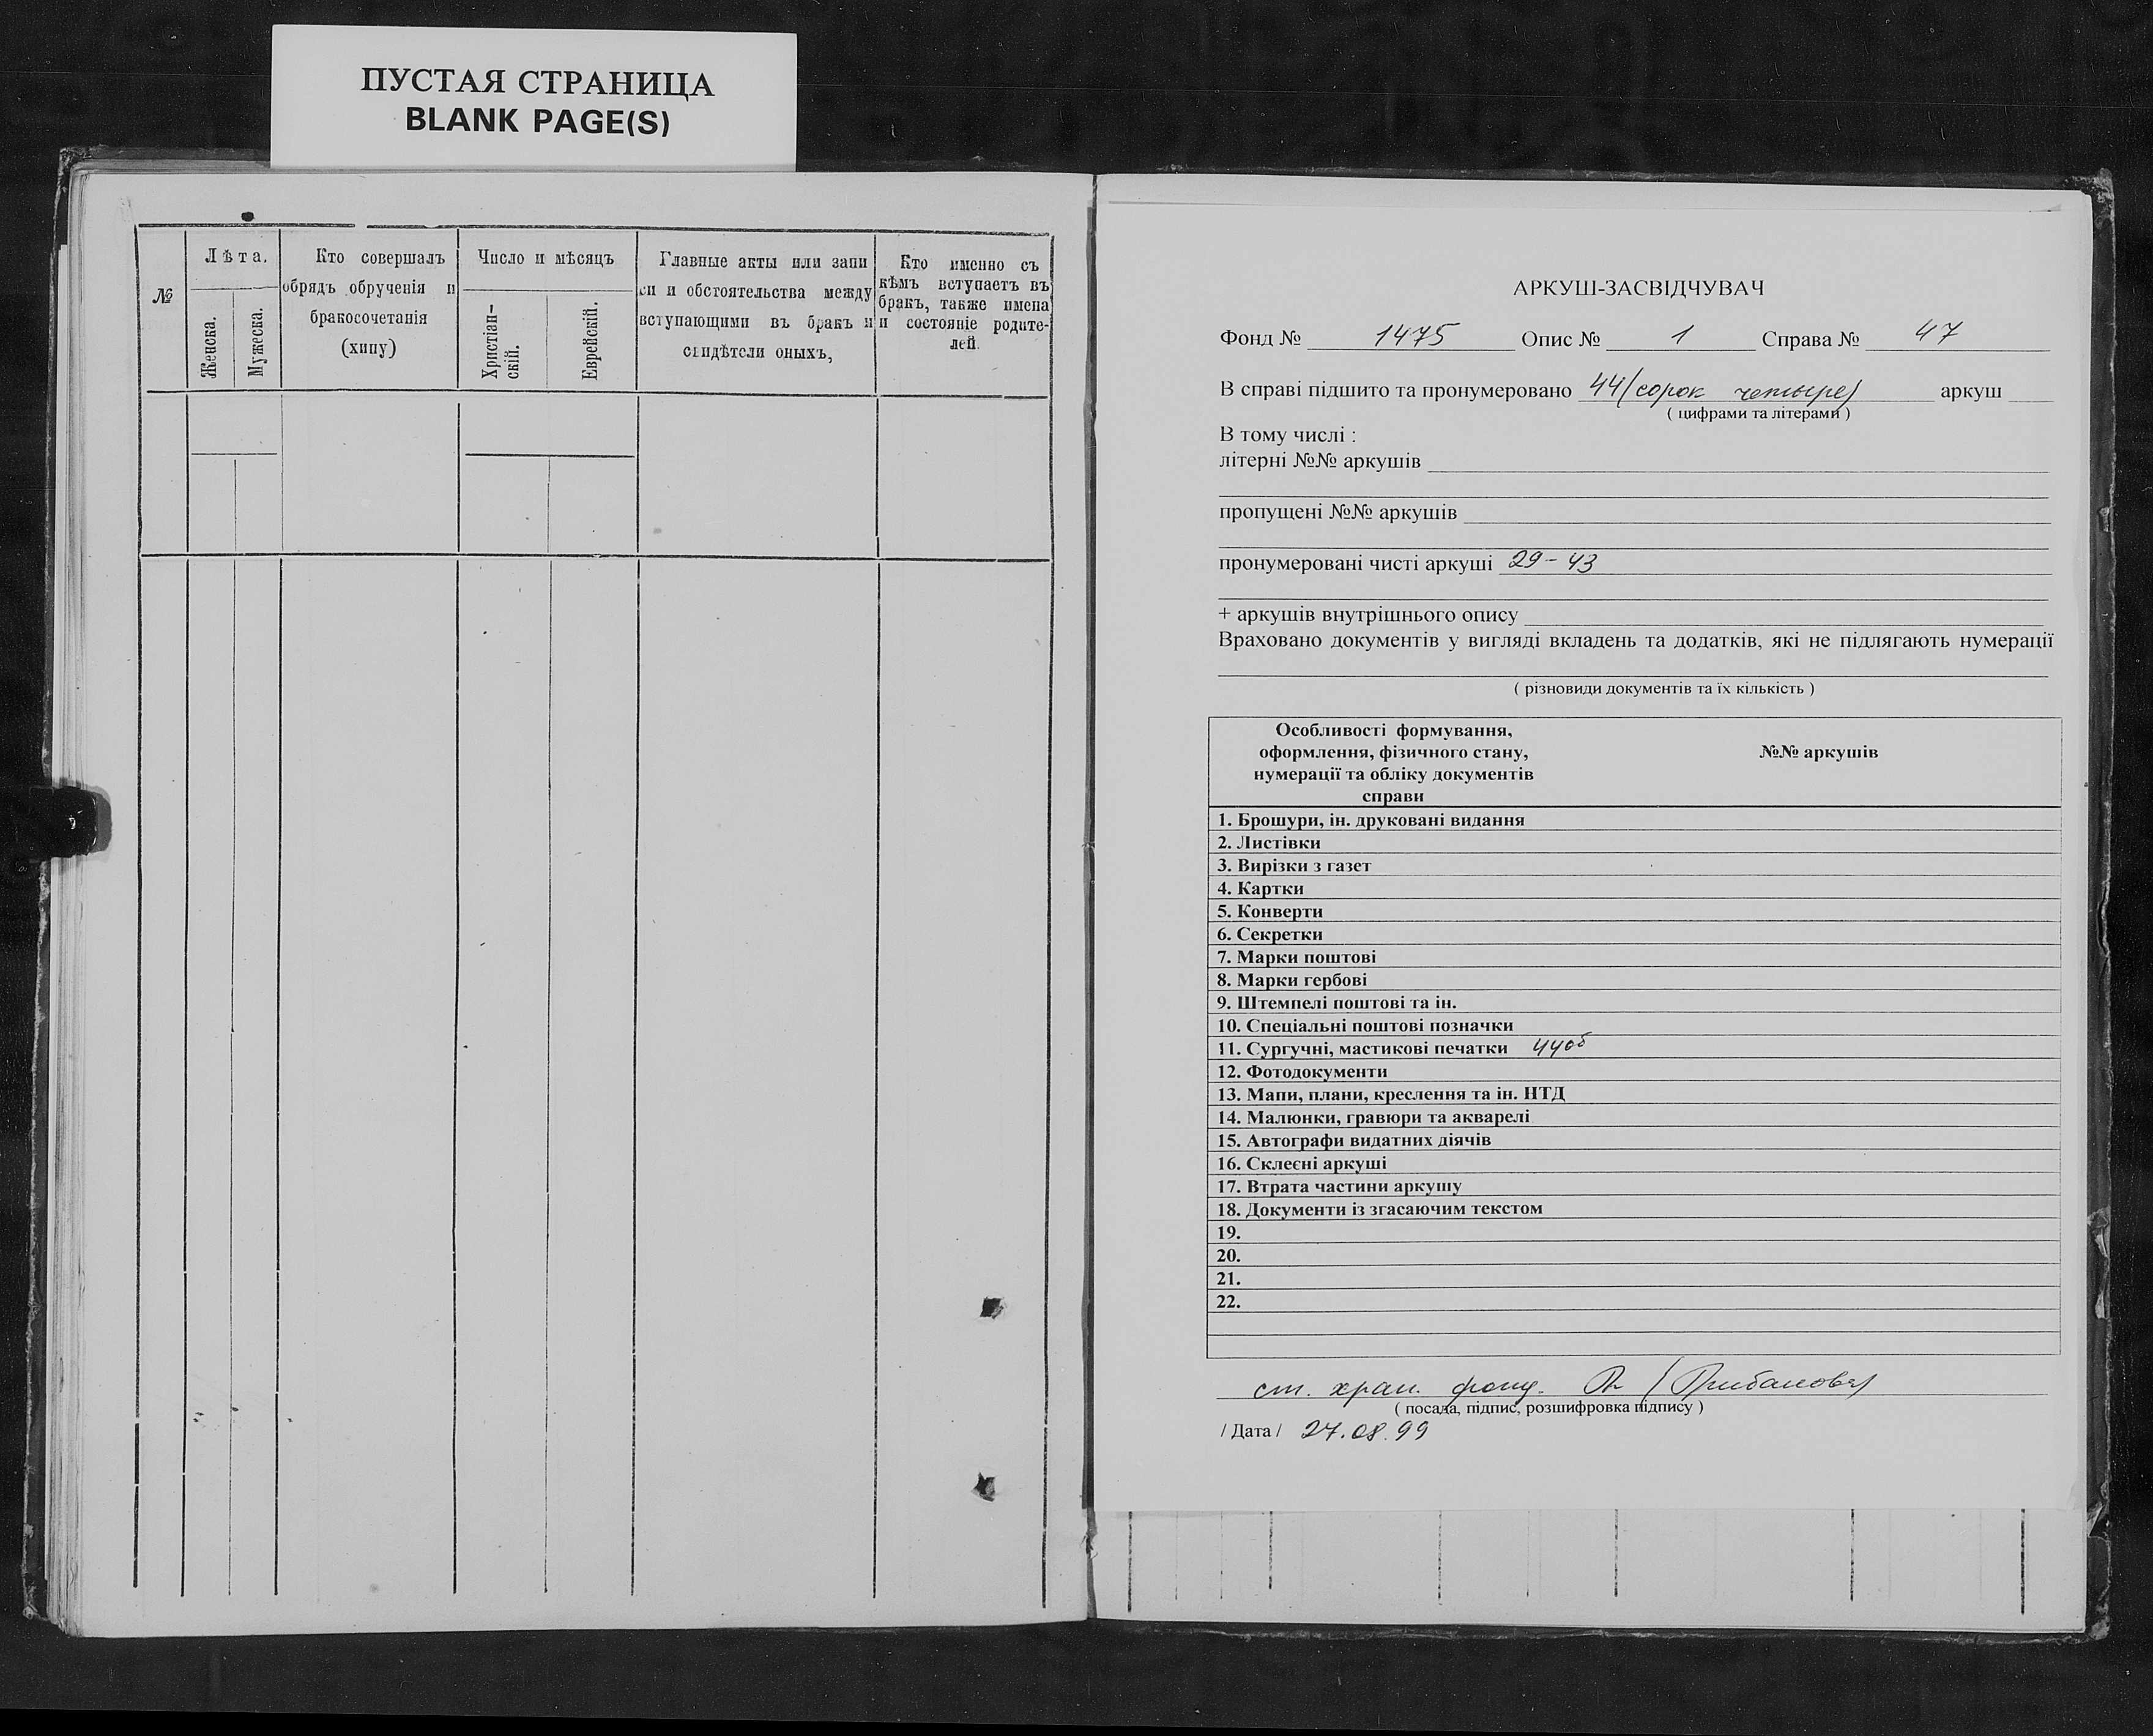 ПУСТАЯ СТРАНИЦА
BLANK PAGE(S)
№
Лѣта.
Женска.
Мужеска.
Кто совершалъ
обрядъ обрученія и
бракосочетанія
(хипу)
Число и мѣсяцъ
Христіан-
скій.
Еврейскій.
Главные акты или запи
си и обстоятельства между
вступающими въ бракъ и
свидѣтели оныхъ,
Кто именно съ
кѣмъ вступаетъ въ
бракъ, также имена
и состояніе родите-
лей.
АРКУШ-ЗАСВІДЧУВАЧ
Фонд № 1475 Опис № 1 Справа № 47
В справі підшито та пронумеровано 44 (сорок четыре) аркуш
( цифрами та літерами )
В тому числі :
літерні №№ аркушів
пропущені №№ аркушів
пронумеровані чисті аркуші 29-43
+ аркушів внутрішнього опису
Враховано документів у вигляді вкладень та додатків, які не підлягають нумерації
( різновиди документів та їх кількість )
Особливості формування,
оформлення, фізичного стану,
нумерації та обліку документів
справи
№№ аркушів
1. Брошури, ін. друковані видання
2. Листівки
3. Вирізки з газет
4. Картки
5. Конверти
6. Секретки
7. Марки поштові
8. Марки гербові
9. Штемпелі поштові та ін.
10. Спеціальні поштові позначки
11. Сургучні, мастикові печатки 44об
12. Фотодокументи
13. Мапи, плани, креслення та ін. НТД
14. Малюнки, гравюри та акварелі
15. Автографи видатних діячів
16. Склеєні аркуші
17. Втрата частини аркушу
18. Документи із згасаючим текстом
19.
20.
21.
22.
ст. хран. фонд.
( посада, підпис, розшифровка підпису )
/ Дата / 27.08.99